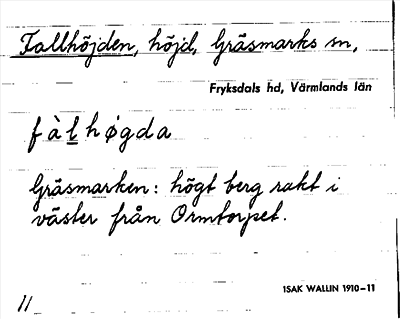 Fallhöjden, höjd, Gräsmarks sn,
Fryksdals hd, Värmlands län
fàḻhøgda
Gräsmarken: högt berg rakt i
väster från Ormtorpet.
ISAK WALLIN 1910–11
11